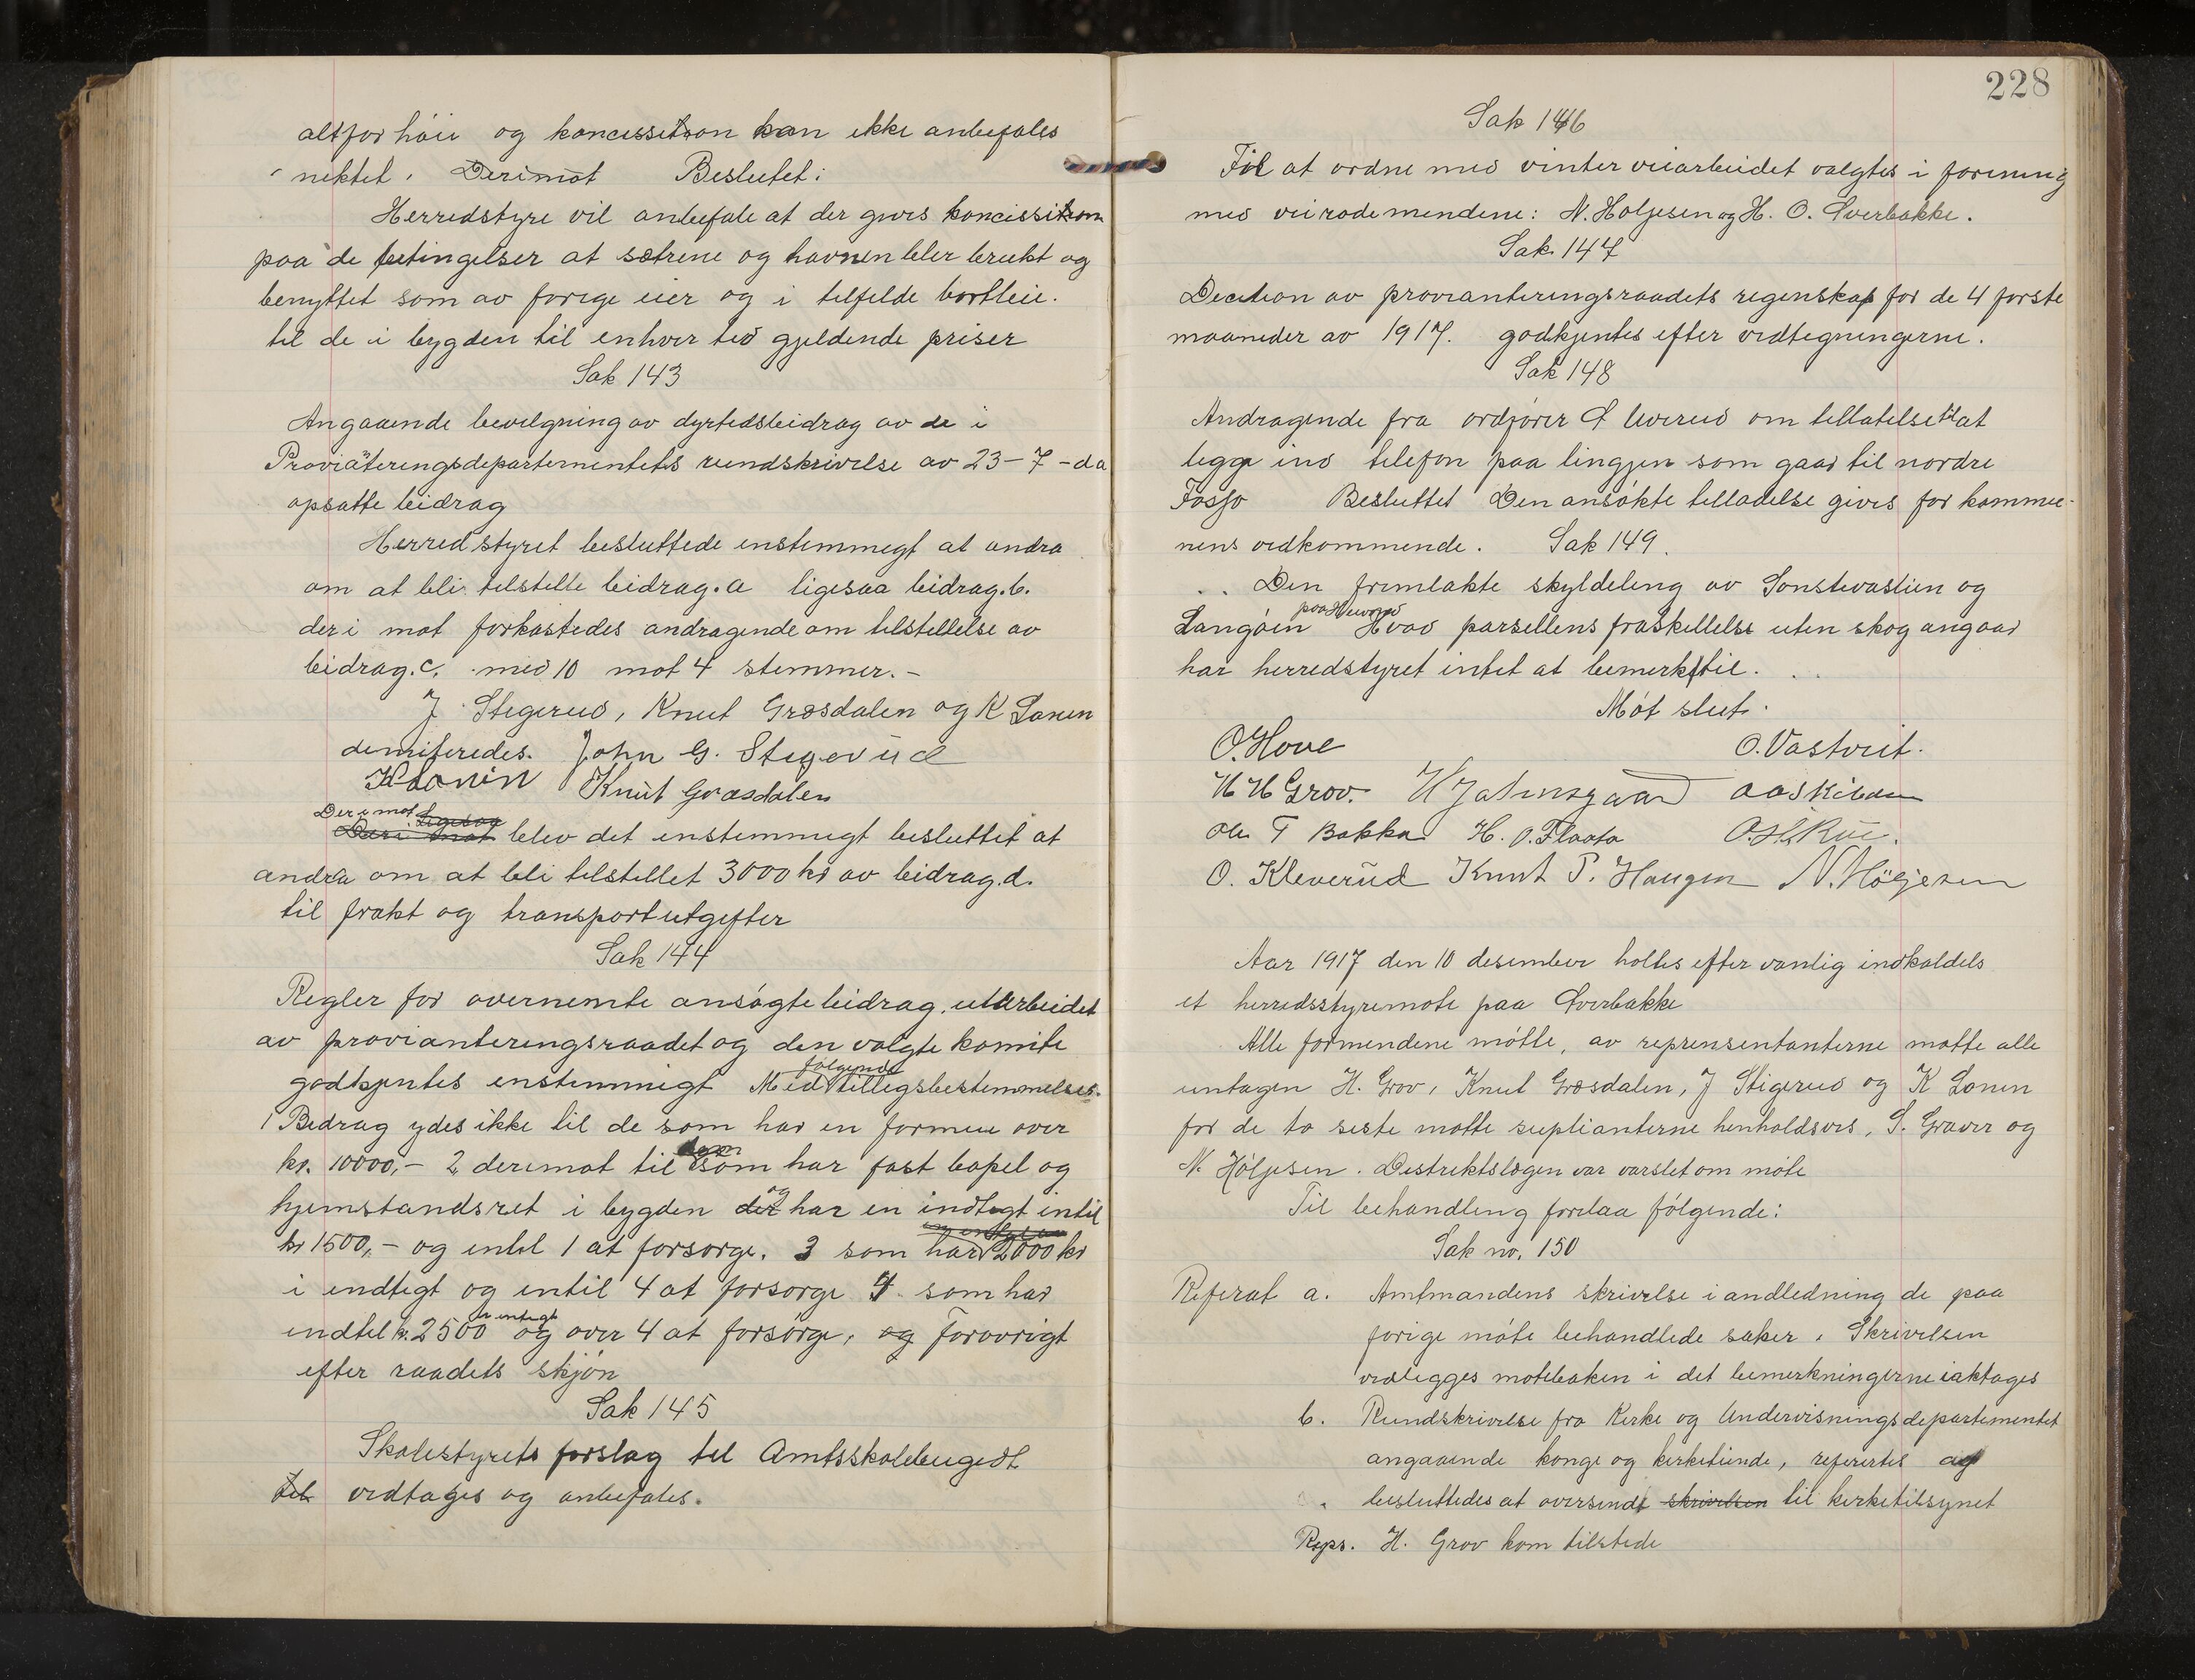 altfor höie og koncessitson kan ikke anbefales
nektet. Derimot Beslutet:
Herredstyre vil anbefale at der gives koncissitson
paa de betingelser at sætrene og havnen bler brukt og
benyttet som av forige eier og i tilfelde bortleie.
til de i bygden til enhver tid gjeldende priser
Sak 143
Angaaende bevilgning av dyrtidsbeidrag av de i
Proviäteringsdepartementets rundskrivelse av 23-7-da
opsatte beidrag
Herredstyret besluttede enstemmigt at andra
om at bli tilstille beidrag.a ligesaa beidrag.b.
der i mot forkastedes andragende om tilstillelse av
beidrag.c. med 10 mot 4 stemmer.-
J Stegerud, Knut Græsdalen og K Lonen
demiteredes. John G. Stegerud
K Lonin Knut Græsdalen
Der i mot Ligesaa
Der i mot blev det enstemmigt besluttet at
andra om at bli tilstillet 3000 kr av beidrag.d.
til frakt og transportutgifter
Sak 144
Regler for overnemte ansögte beidrag, utarbeidet
av provianteringsraadet og den valgte komite
følgende
godkjentes enstemmigt Med tillegsbestemmelser.
1 Bedrag ydes ikke til de som har en formue over
kr. 10000,- 2 derimot til dem som har fast bopel og
hjemstandsret i bygden der og har en indtegt intil
kr 1500,- og intil 1 at forsorge. 3 som har 2000 kr
i indtegt og intil 4 at forsorge 4 som har
indtil kr. 2500 i integt og over 4 at forsörge, og Forovrigt
efter raadets skjön
Sak 145
Skolestyrets forslag til Amtsskolebugedt
til vedtages og anbefales.
228
Sak 146
Til at ordne med vinter veiarbeidet valgtes i forening
med veirodemendene: N. Holjesen og H. O. Överbakke.
Sak 147
Decition av provianteringsraadets regenskap for de 4 forste
maaneder av 1917. godkjentes efter vedtegningerne.
Sak 148
Andragende fra ordförer O Uverud om tillatelse til at
legge ind telefon paa lingjen som gaar til nordre
Fosso Besluttet Den ansökte tilladelse gives for kommu-
nens vedkommende. Sak 149.
Den fremlakte skyldeling av Sonstevastlien og
Langöin Hvad parsellens fraskillelse uten skog angaar
har herredstyret intet at bemerke til.
Möt slut.
O. Hove O. Vastveit.
H H Grov. H Jalmsgaard
Ole T Bakka H. O. Flaata O. H. Rue.
O. Kleverud Knut P. Haugen N. Höljesen
Aar 1917 den 10 desember holtes efter vanlig indkaldels
et herredsstyremote paa Överbakke
Alle formendene mötte, av reprensentanterne motte alle
untagen H. Grov, Knut Græsdalen, J Stigerud og K Lonen
for de to siste motte suplianterne henholdsvis, S. Graver og
N. Höljesen. Destriktslægen var varslet om möte
Til behandling forelaa fölgende:
Sak no. 150
Referat a. Amtmandens skrivelse i andledning de paa
forige möte behandlede saker. Skrivelsen
vedlegges moteboken i det bemerkningerne iaktages
b. Rundskrivelse fra Kirke og Undervisningsdepartementet
angaaende konge og kirketiende, referertes og
besluttedes at oversende skrivelsen til kirketilsynet
Reps. H. Grov kom tilstede